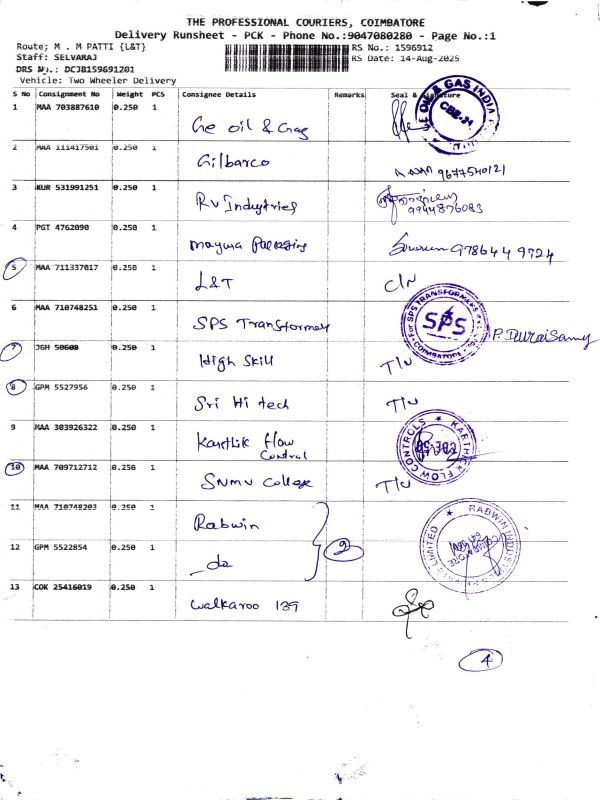 THE PROFESSIONAL COURIERS, COIMBATORE
Delivery Runsheet - PCK - Phone No.:9047080280 - Page No.:1
Route; M . M PATTI {L&T} RS No.: 1596912
Staff: SELVARAJ RS Date: 14-Aug-2025
DRS No.: DCJB159691201
Vehicle: Two Wheeler Delivery
S No Consignment No Weight PCS Consignee Details Remarks Seal & Signature
1 MAA 703887610 0.250 1 Ge oil & Gas OIL & GAS INDIA CBE-21
2 MAA 111417501 0.250 1 Gilbarco 9677540121
3 KUR 531991251 0.250 1 RV Industries 9944876083
4 PGT 4762090 0.250 1 mayura Packaging 978644 9724
5 MAA 711337017 0.250 1 L&T C/N
6 MAA 710748251 0.250 1 SPS Transformer For SPS TRANSFORMERS SPS COIMBATORE P. Duraisamy
7 JGH 50608 0.250 1 High Skill T/U
8 GPM 5527956 0.250 1 Sri Hi tech T/U
9 MAA 303926322 0.250 1 Karthik flow Control KARTHIK FLOW CONTROLS
10 MAA 709712712 0.250 1 SNMV College T/U
11 MAA 710748203 0.250 1 Rabwin RABWIN INDUSTRIES PRIVATE LIMITED
12 GPM 5522854 0.250 1 _do 2
13 COK 25416019 0.250 1 walkaroo 139
4